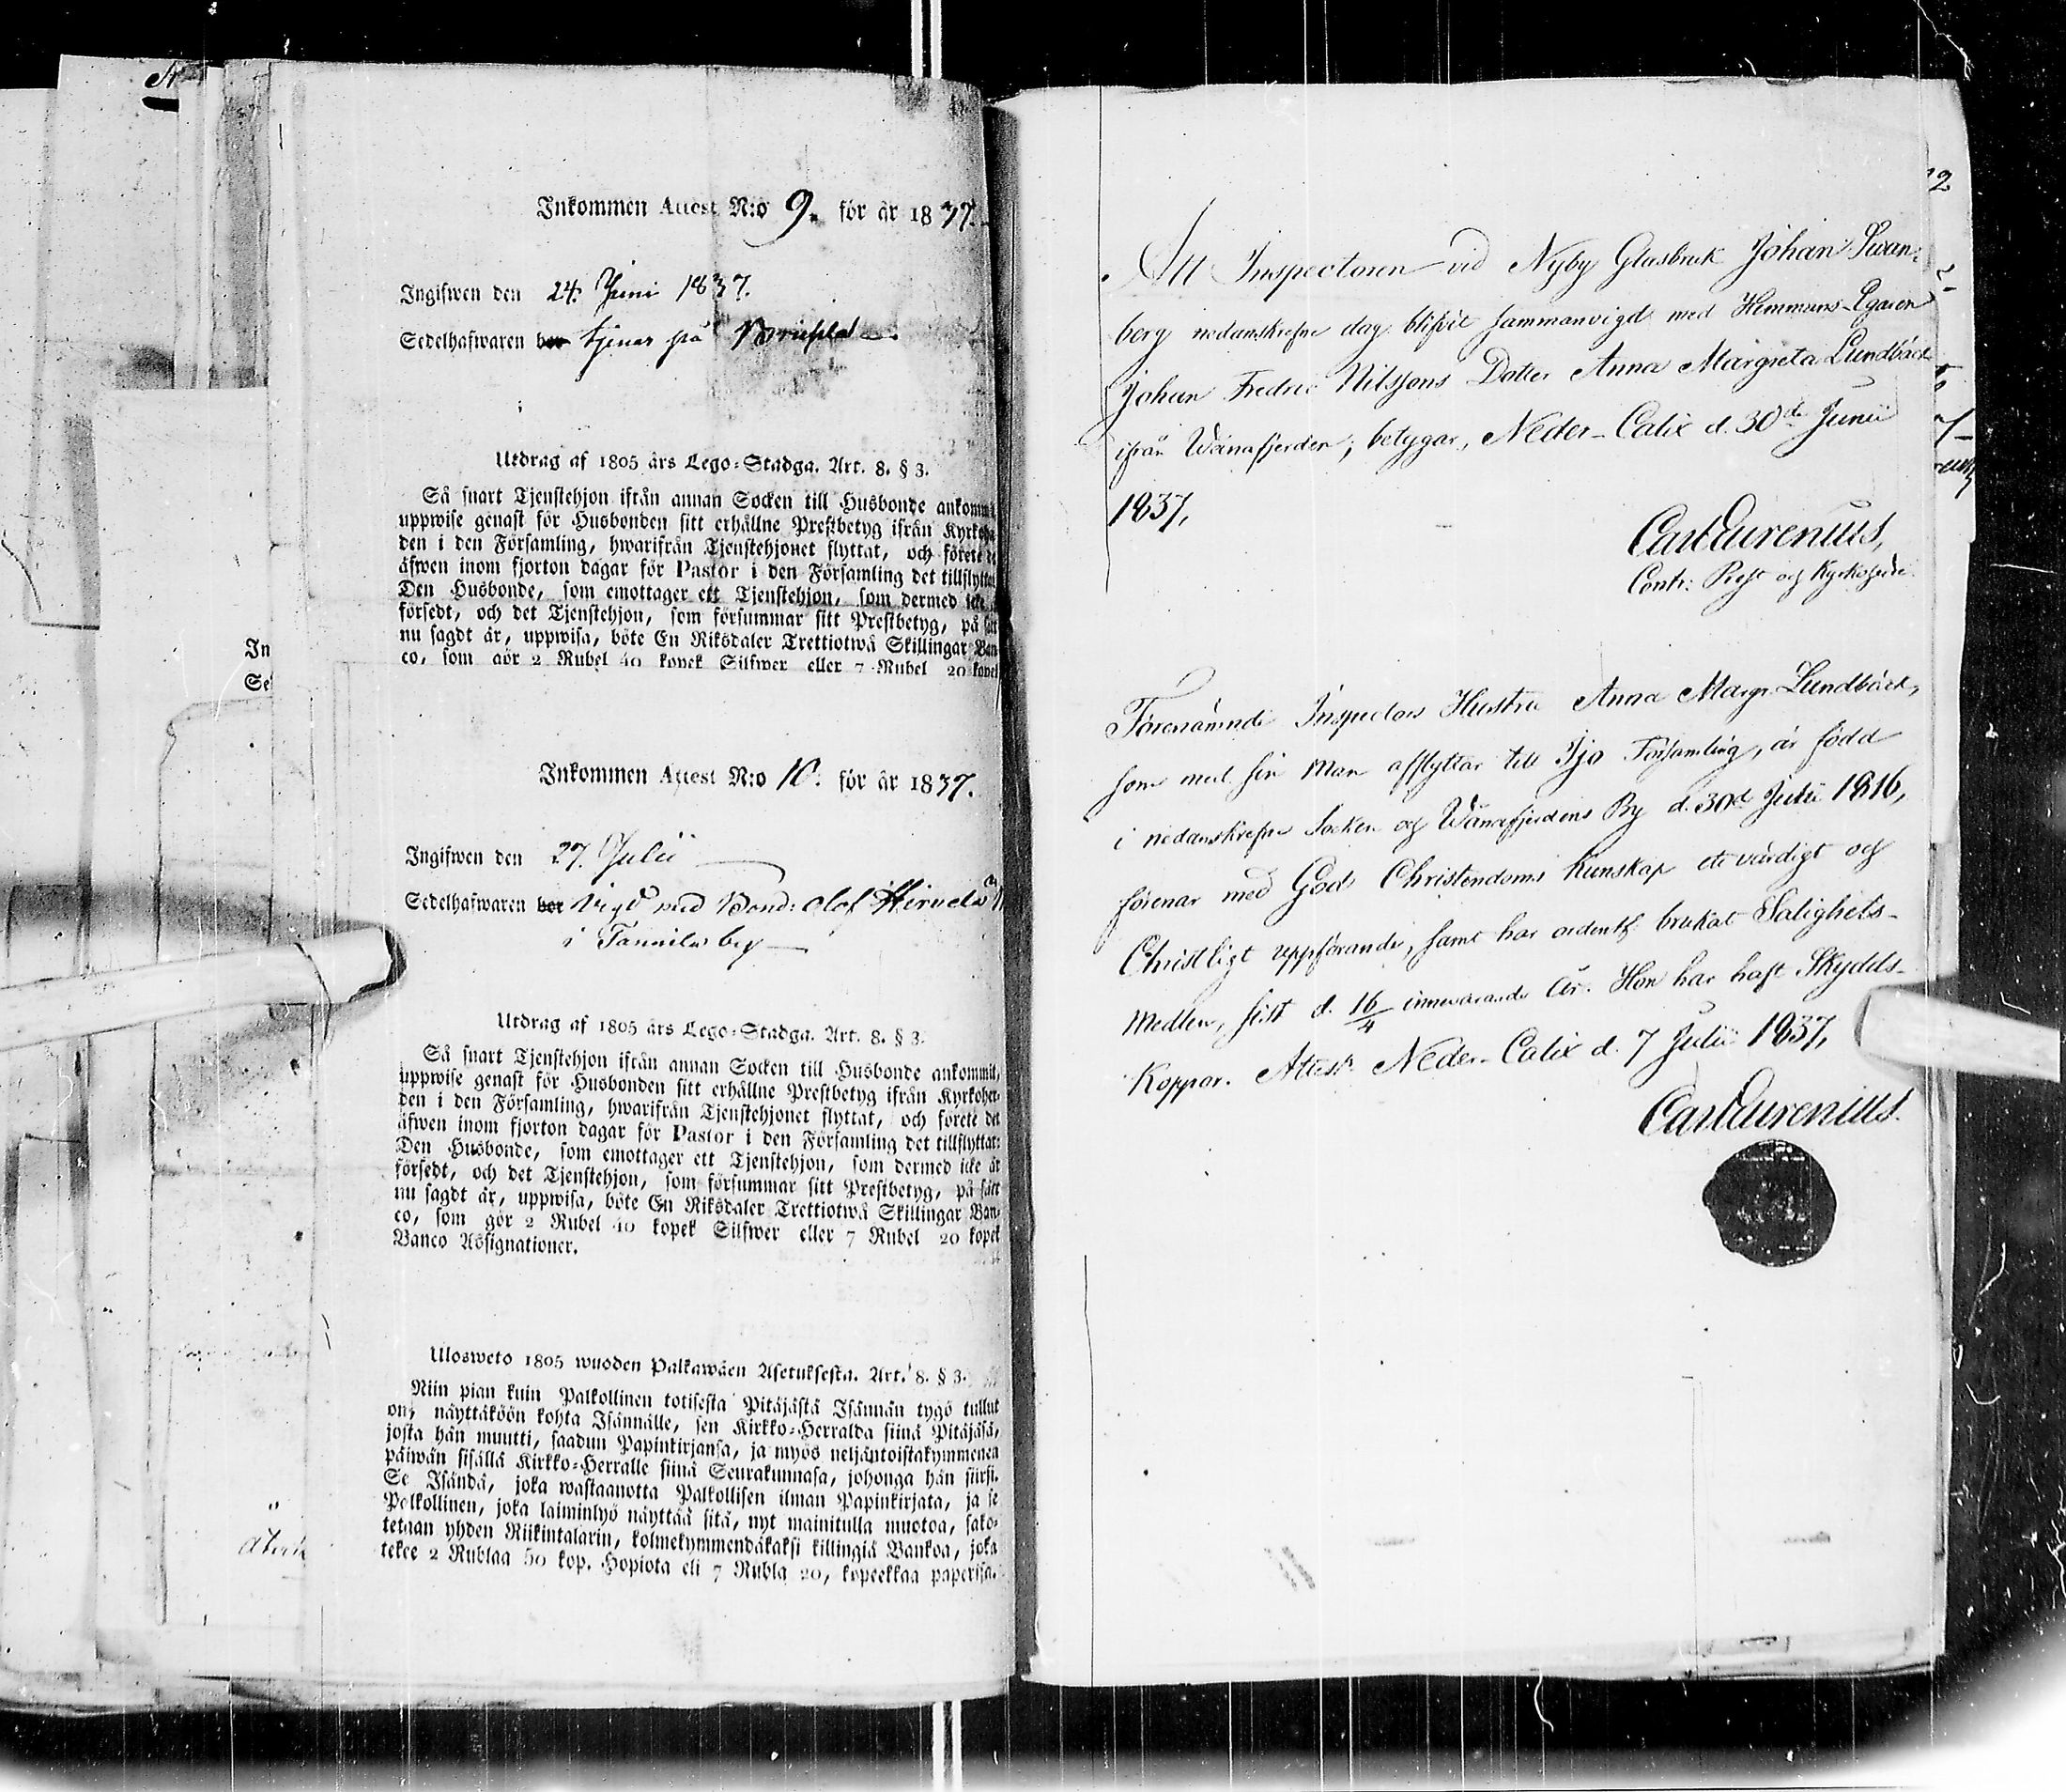 Inkommen Attest N:o 9. för år 1837.
Ingifwen den 24. Juni 1837.
Sedelhafwaren bor tjenar på
Utdrag af 1805 års Lego-Stadga. Art. 8. § 3.
Så snart Tjenstehjon ifrån annan Socken till Husbonde ankommit,
uppwise genast för Husbonden sitt erhållne Prestbetyg ifrån Kyrkoher-
den i den Församling, hwarifrån Tjenstehjonet flyttat, och förete det
äfwen inom fjorton dagar för Pastor i den Församling det tillflyttat.
Den Husbonde, som emottager ett Tjenstehjon, som dermed icke är
försedt, och det Tjenstehjon, som försummar sitt Prestbetyg, på sätt
nu sagdt är, uppwisa, böte En Riksdaler Trettiotwå Skillingar Ban-
co, som gör 2 Rubel 40 kopek Silfwer eller 7 Rubel 20 kopek
Inkommen Attest N:o 10. för år 1837.
Ingifwen den 27. Julii
Sedelhafwaren bor Vigd med Bond: Olof
i Tannila by
Utdrag af 1805 års Lego-Stadga. Art. 8. § 3.
Så snart Tjenstehjon ifrån annan Socken till Husbonde ankommit,
uppwise genast för Husbonden sitt erhållne Prestbetyg ifrån Kyrkoher-
den i den Församling, hwarifrån Tjenstehjonet flyttat, och förete det
äfwen inom fjorton dagar för Pastor i den Församling det tillflyttat.
Den Husbonde, som emottager ett Tjenstehjon, som dermed icke är
försedt, och det Tjenstehjon, som försummar sitt Prestbetyg, på sätt
nu sagdt är, uppwisa, böte En Riksdaler Trettiotwå Skillingar Ban-
co, som gör 2 Rubel 40 kopek Silfwer eller 7 Rubel 20 kopek
Banco Assignationer.
Ulosweto 1805 wuoden Palkawäen Asetuksesta. Art. 8. § 3.
Niin pian kuin Palkollinen totisesta Pitäjästä Isännän tygö tullut
on, näyttäköön kohta Isännälle, sen Kirkko-Herralda siinä Pitäjäsä,
josta hän muutti, saadun Papinkirjansa, ja myös neljäntoistakymmenen
päiwän sisällä Kirkko-Herralle siinä Seurakunnasa, johonga hän siirsi.
Se Isändä, joka wastaanotta Palkollisen ilman Papinkirjata, ja se
Palkollinen, joka laiminlyö näyttää sitä, nyt mainitulla muotoa, sako-
tetaan yhden Riikintalarin, kolmekymmendäkaksi killingiä Bankoa, joka
tekee 2 Rublaa 50 kop. Hopiota eli 7 Rubla 20, kopeekkaa paperisa.
Att Inspectoren vid Nyby Glasbruk Johan Swan-
berg nedanskrefne dag blifvit sammanvigd med Hemmans-Egaren
Johan Fredric Nilssons Dotter Anna Margreta Lundbäck
ifrån Wånafjerden; betygar, Neder-Calix d. 30de Junii
1837,
Carl Aurenius,
Contr: Prost och Kyrkoherde.
Förenämnde Inspectors Hustru Anna Margr. Lundbäck,
som med sin Man afflyttar till Ijo Församling, är född
i nedanskrefne Socken och Wånafjerdens By d. 30de Julii 1816,
förenar med God Christendoms Kunskap ett värdigt och
Christligt uppförande, samt har ordentl. brukat Salighets-
Medlen, sist d. 16/4 innevarande år. Hon har haft Skydds-
Koppor. Attest. Neder-Calix d. 7 Julii 1837,
Carl Aurenius.